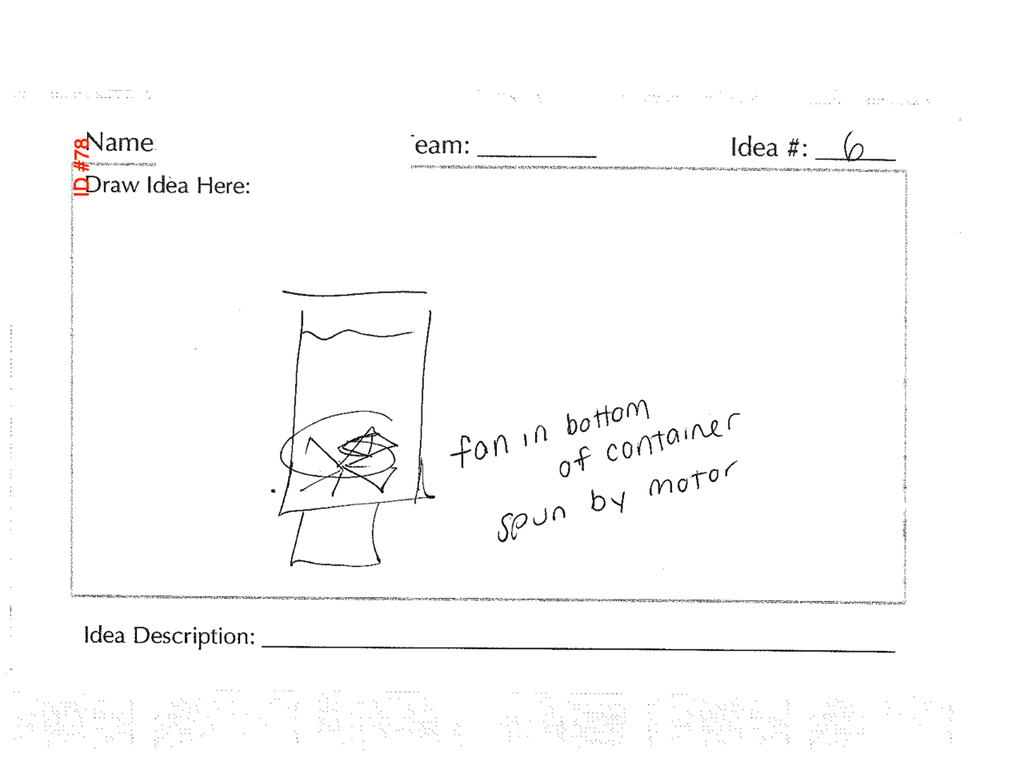 ID #78
Name:
eam:
Idea #: 6
Draw Idea Here:
fan in bottom
of container
spun by motor
Idea Description: